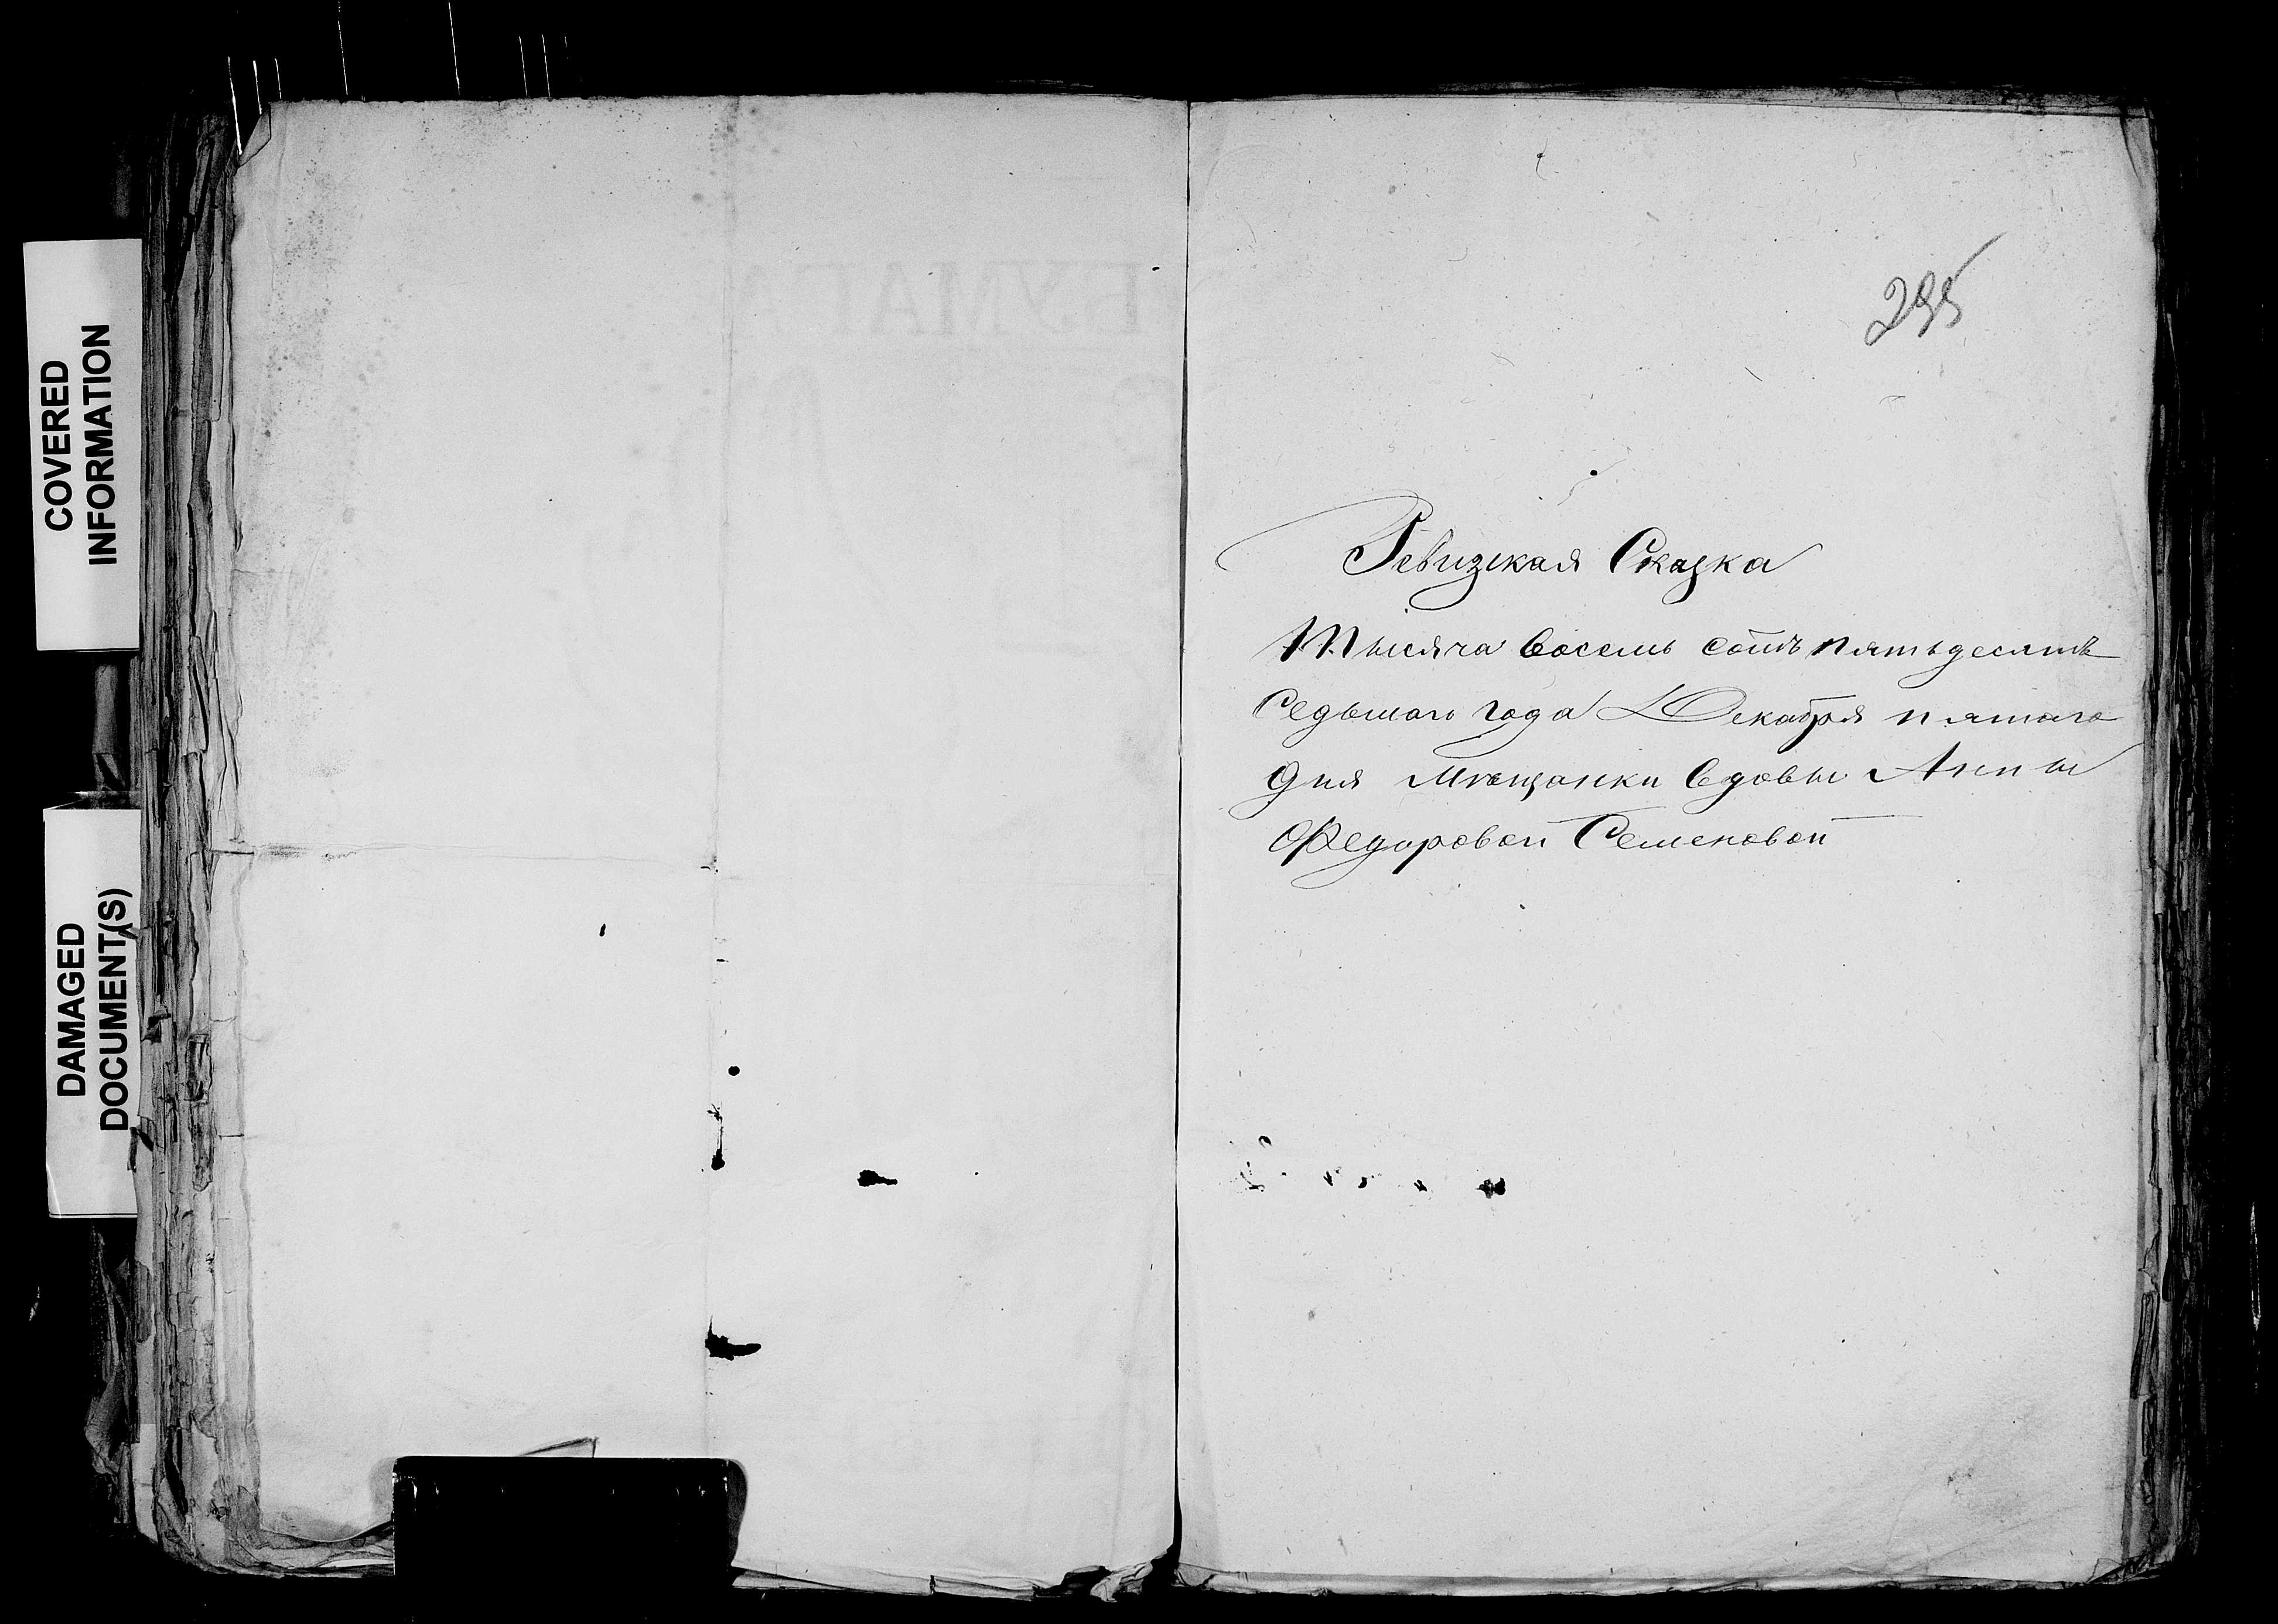 COVERED
INFORMATION
DAMAGED
DOCUMENT(S)
БУМАГА
295
Ревизская Сказка
Тысяча восемь сотъ пятьдесятъ
Седьмаго года Декабря пятаго
дня Мѣщанки вдовы Анны
Федоровой Семеновой